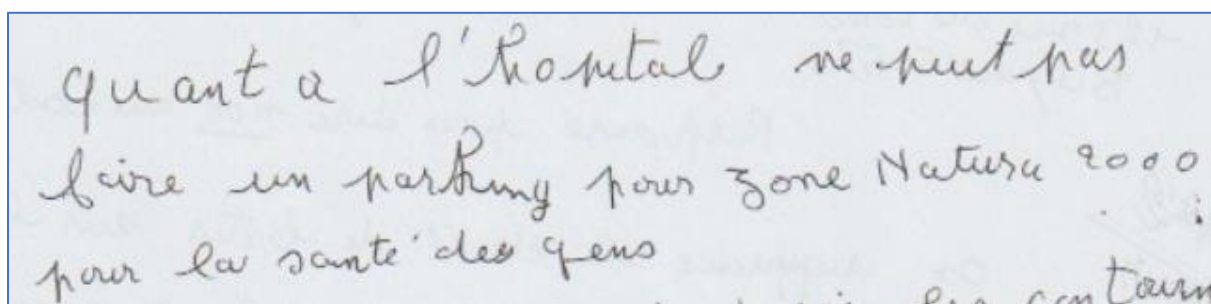 quant a l'hopital ne peut pas
faire un parking pour zone Natura 2000
pour la santé des gens
les contourn